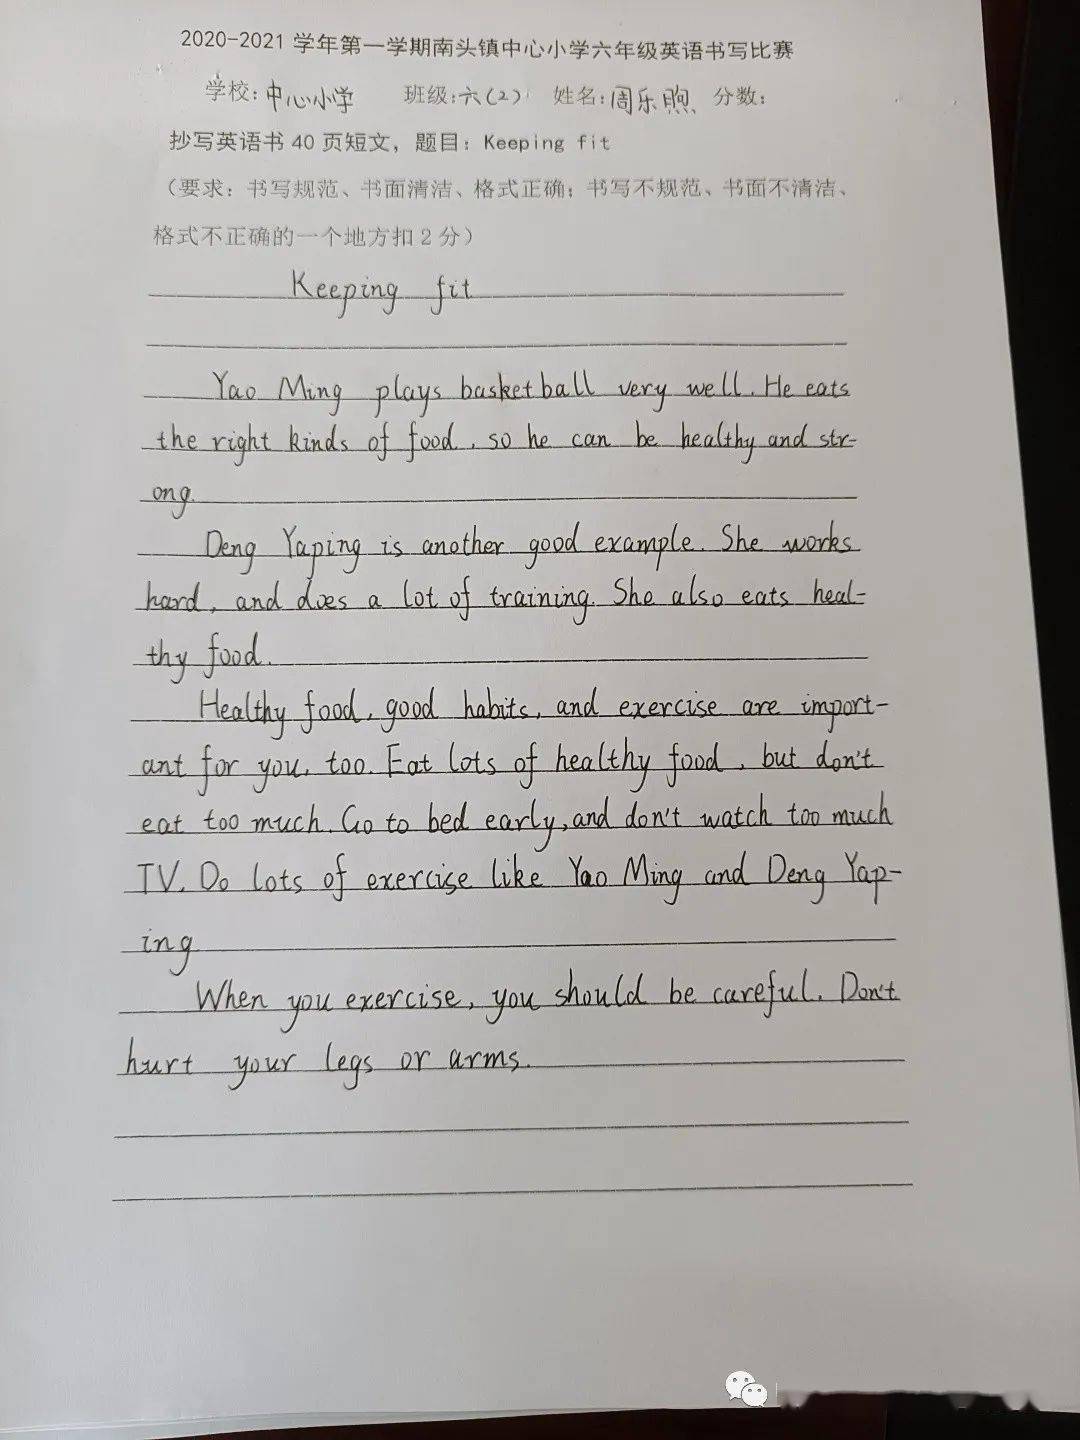 2020-2021 学年第一学期南头镇中心小学六年级英语书写比赛
学校: 中心小学 班级: 六(2) 姓名: 周乐煦 分数:
抄写英语书 40 页短文，题目：Keeping fit
（要求：书写规范、书面清洁、格式正确；书写不规范、书面不清洁、
格式不正确的一个地方扣 2 分）
Keeping fit
Yao Ming plays basketball very well. He eats
the right kinds of food, so he can be healthy and str-
ong.
Deng Yaping is another good example. She works
hard, and does a lot of training. She also eats heal-
thy food.
Healthy food, good habits, and exercise are import-
ant for you, too. Eat lots of healthy food, but don't
eat too much. Go to bed early, and don't watch too much
TV. Do lots of exercise like Yao Ming and Deng Yap-
ing
When you exercise, you should be careful. Don't
hurt your legs or arms.